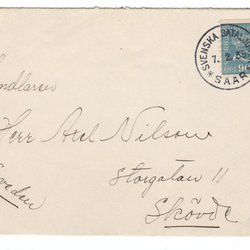 SVENSKA BATALJ
7. 2. 35
SAAR
ÖRE 90
Herr Axel Nilson
Storgatan 11
Skövde
Sweden